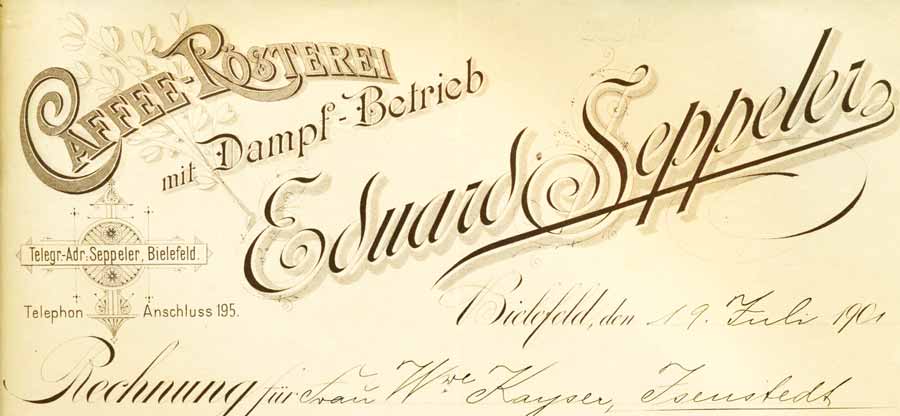 Caffee-Rösterei
mit Dampf-Betrieb
Eduard Seppeler
Telegr.-Adr.: Seppeler, Bielefeld.
Telephon Anschluss 195.
Bielefeld, den 19. Juli 1901
Rechnung für Frau Wwe Kayser, Isenstedt